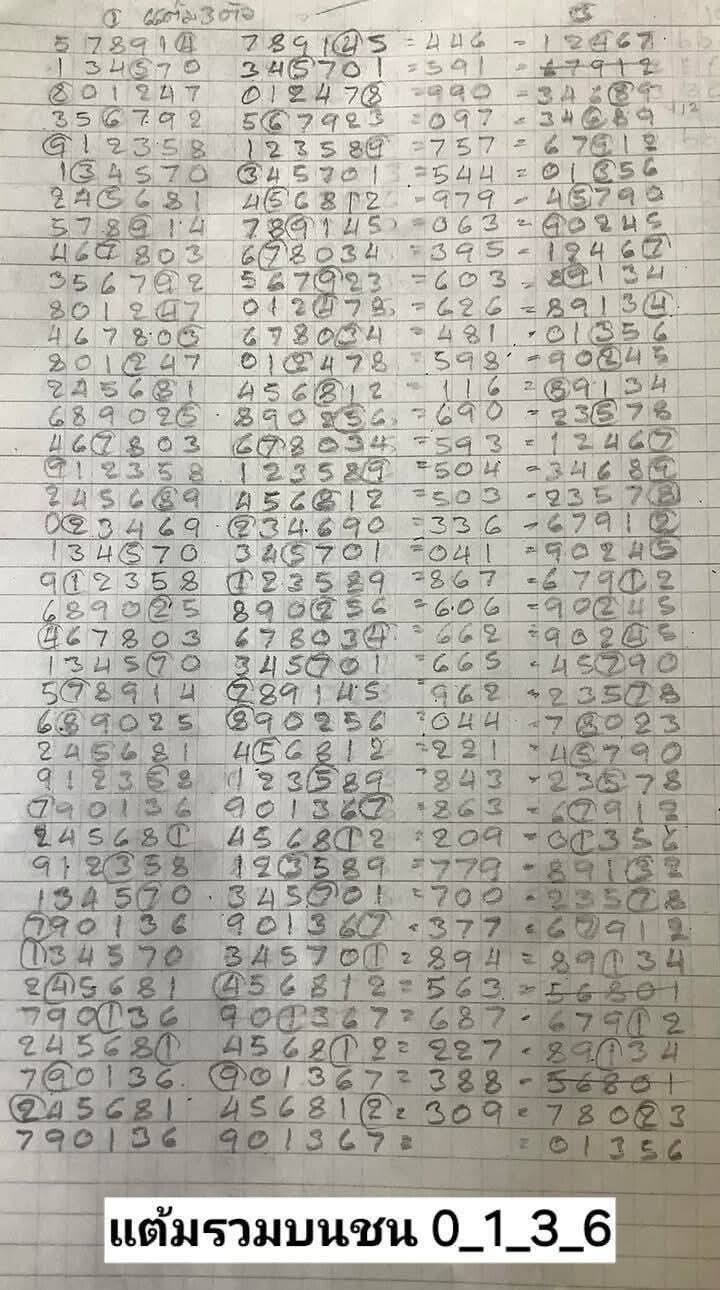 ① แต้ม 3 ตัว
578914 789145 = 446 = 12467
134570 345701 = 591 = 67912
801247 012478 = 990 = 34689
356792 567923 = 097 = 34689
912358 123589 = 757 = 67912
134570 345701 = 544 = 01356
245681 456812 = 979 - 45790
578914 789145 = 063 = 90245
467803 678034 = 395 - 12467
356792 567923 = 603 = 89134
801247 012478 = 626 = 89134
467803 678034 = 481 - 01356
801247 012478 = 598 = 90245
245681 456812 = 116 = 89134
689025 890256 = 690 = 23578
467803 678034 = 593 = 12467
912358 123589 = 504 = 34689
245689 456812 = 503 - 23578
023469 234690 = 336 - 67912
134570 345701 = 041 = 90245
912358 123589 = 867 = 67912
689025 890256 = 606 = 90245
467803 678034 = 662 = 90245
134570 345701 = 665 - 45790
578914 789145 = 962 = 23578
689025 890256 = 044 - 78023
245681 456812 = 221 - 45790
912358 123589 = 843 - 23578
790136 901367 = 863 - 67912
245681 456812 = 209 = 01356
912358 123589 = 779 - 89132
134570 345701 = 700 = 23578
790136 901367 - 377 = 67912
134570 345701 = 894 = 89134
245681 456812 = 563 = 56801
790136 901367 = 687 - 67912
245681 456812 = 227 - 89134
790136 901367 = 388 - 56801
245681 456812 = 309 = 78023
790136 901367 = = 01356
แต้มรวมบนชน 0_1_3_6